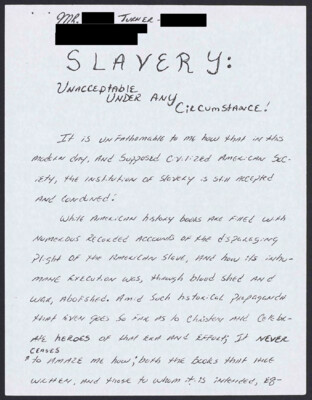 Mr. Turner -
SLAVERY:
Unacceptable
Under Any
Circumstance!
It is unfathomable to me how that in this
modern day, and supposed civilized American Soc-
iety, the institution of slavery is still accepted
and condoned!
While American history books are filled with
numerous recorded accounts of the disparaging
plight of the American slave, and how its inhu-
mane execution was, though blood shed and
war, abolished. Amid such historical propaganda
that even goes so far as to Christen and Celebr-
ate heroes of that era and effort, It never
ceases
to amaze me how; both the books that are
written, and those to whom it is intended, eg-